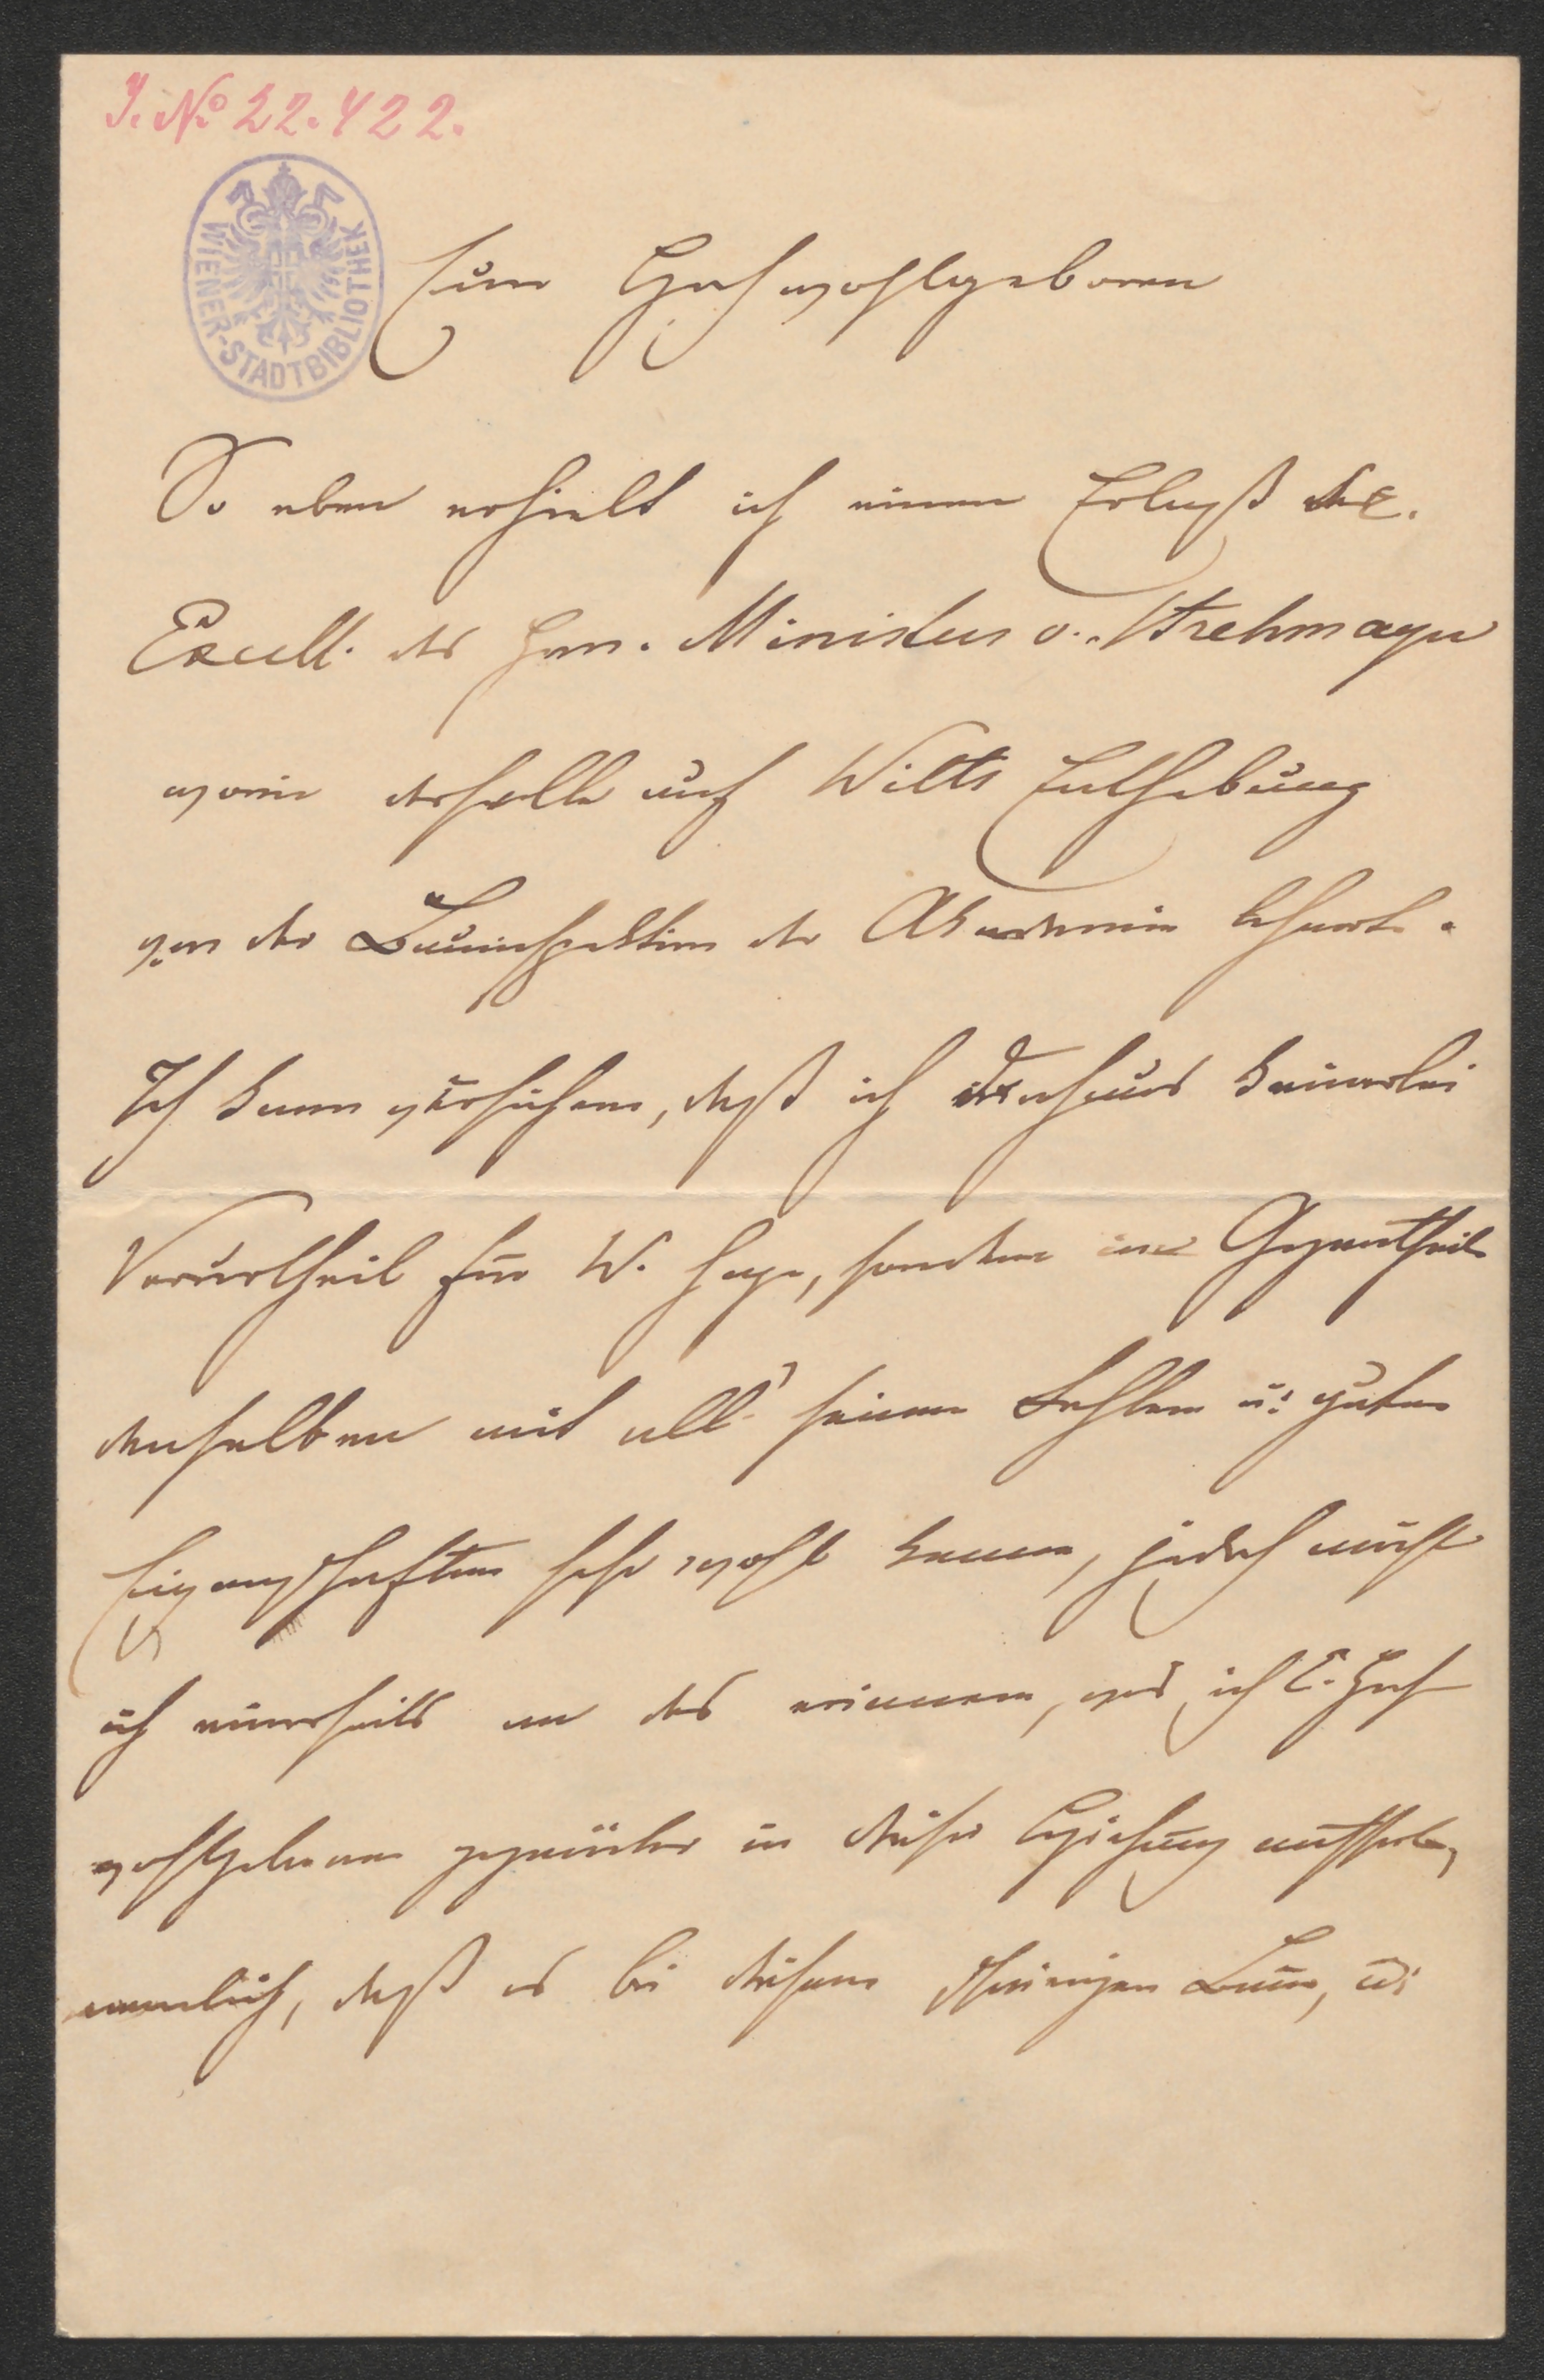 J. No 22.422.
WIENER-STADTBIBLIOTHEK
Euer Hochwohlgeboren
So eben erhielt ich einen Erlaß Sr.
Excell. des Herrn Ministers v. Strehmayr
worin derselbe auf Wilts Enthebung
von der Bauinspektion der Akademie
Ich kann versichern, daß ich durchaus keinerlei
Vorurtheil für W. hege, sondern im Gegentheile
denselben mit all' seinen Fehlern u: guten
Eigenschaften sehr wohl kenne, jedoch muß
ich einerseits an das erinnern, was ich E. Hoch
wohlgeboren gegenüber in dieser Beziehung
nemlich, daß es bei diesem schwierigen Baue, wo